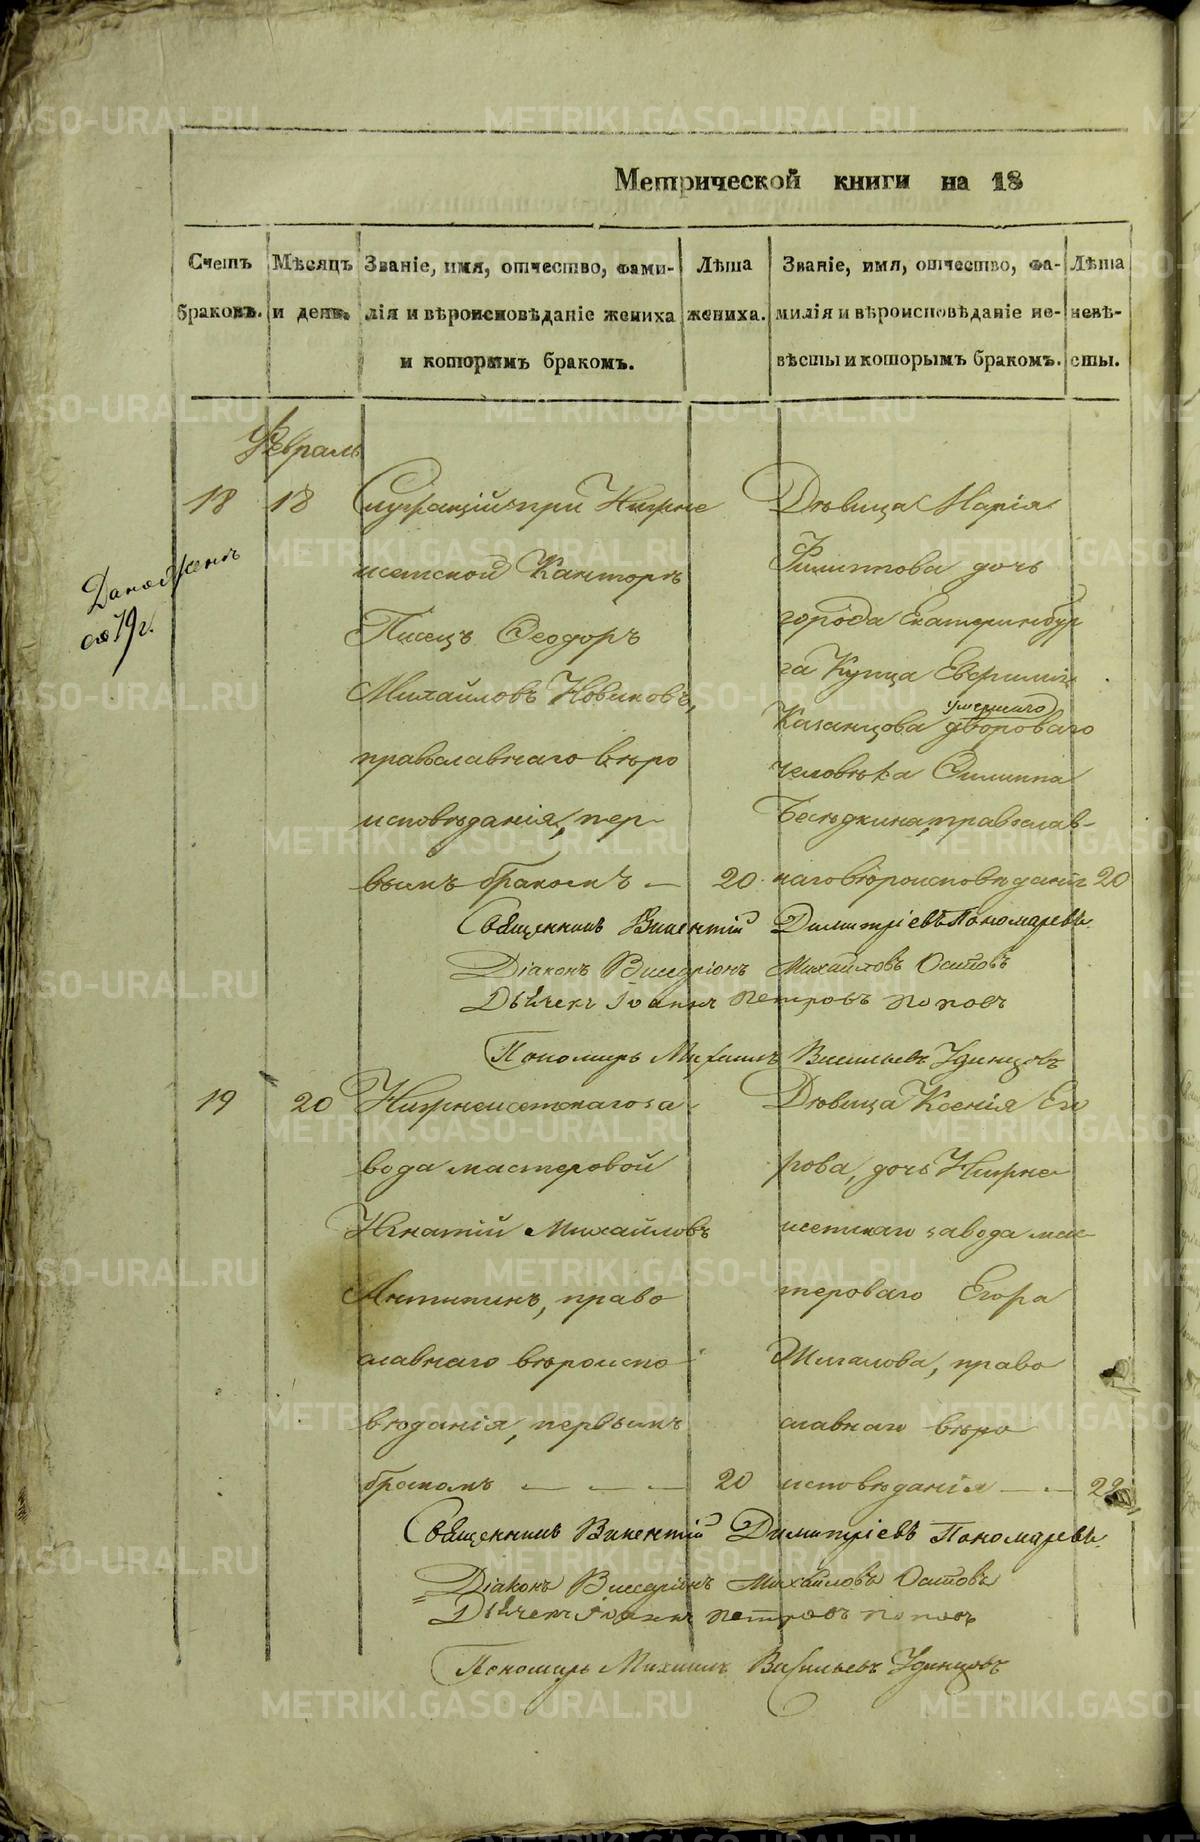 Метрической книги на 18
Счетъ браковъ.
Мѣсяцъ и день.
Званіе, имя, отчество, фамилія и вѣроисповѣданіе жениха и которымъ бракомъ.
Лѣта жениха.
Званіе, имя, отчество, фамилія и вѣроисповѣданіе невѣсты и которымъ бракомъ.
Лѣта невѣсты.
Февраль
18 18
Служащій при Нижне
исетской Канторѣ
Писецъ Ѳеодоръ
Михайловъ Новиковъ,
православнаго вѣро
исповѣданія, пер-
вымъ бракомъ — 20
Дѣвица Марія
Филиппова дочь
города Екатеринбур
га Купца
Казанцова умершаго двороваго
человѣка Филиппа
Бесѣдкина, православ-
наго вѣроисповѣданія 20
Священникъ Викентій Димитріевъ Пономаревъ.
Діаконъ Михайловъ
Дьячекъ Іоаннъ Петровъ Поповъ
Пономарь Михаилъ Васильевъ Удинцовъ
19 20
Нижнеисетскаго за
вода мастеровой
Игнатій Михайловъ
Антипинъ, право
славнаго вѣроиспо
вѣданія, первымъ
бракомъ — — — 20
Дѣвица Ксенія Его
рова, дочь Нижне
исетскаго завода мас
тероваго Егора
Жигалова, право
славнаго вѣро
исповѣданія — — 22
Священникъ Викентій Димитріевъ Пономаревъ.
Діаконъ Михайловъ
Дьячекъ Іоаннъ Петровъ Поповъ
Пономарь Михаилъ Васильевъ Удинцовъ
METRIKI.GASO-URAL.RU